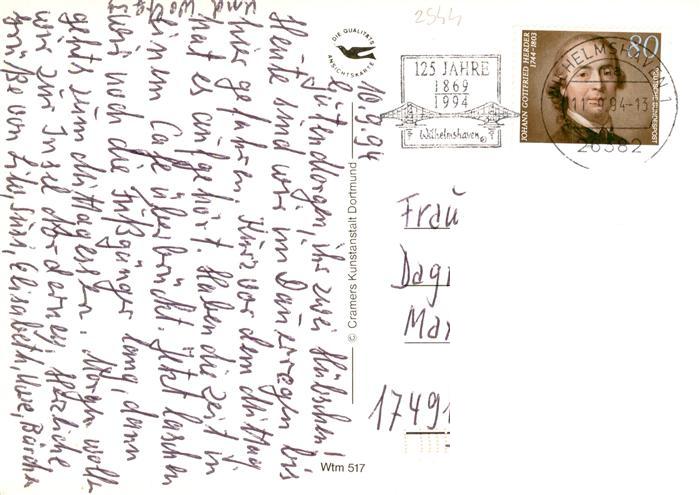 10.9.94
Gutendorgen, ihr zwei Hübschen!
Heute sind wir im Dauerregen bis
hier gefahren. Kurz vor dem Mittag
hat es aufgehört. Haben die Zeit in
einem Café überbrückt. Jetzt laufen
wir noch die Fußgänger lang, dann
gehts zum Mittagessen. Morgen woll
wir zur Insel Norderney. Herzliche
Grüße von Elisabeth, Uwe, Bärchen
und
2544
DIE QUALITÄTS
ANSICHTSKARTE
125 JAHRE
1869
1994
Wilhelmshaven
JOHANN GOTTFRIED HERDER
1744-1803
80
DEUTSCHE BUNDESPOST
WILHELMSHAVEN 1
11.9.94-13
26382
Frau
Dag
Mar
17491
© Cramers Kunstanstalt Dortmund
Wtm 517